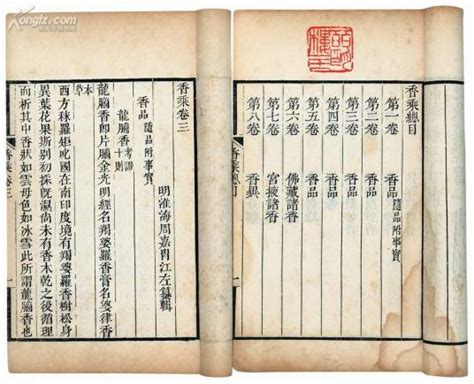 香乘總目
第一卷 香品 隨品附事實
第二卷 香品
第三卷 香品
第四卷 香品
第五卷 香品
第六卷 佛藏諸香
第七卷 宮掖諸香
第八卷 香異
香乘總目 一
香乘卷三
明淮海周嘉冑江左纂輯
香品 隨品附事實
龍腦香考證十則
龍腦香即片腦金光明經名羯婆羅香膏名婆律香
本草
西方秣羅矩吒國在南印度境有羯婆羅香樹松身
異葉花果斯別初採既濕尚未有香木乾之後循理
而析其中香狀如雲母色如冰雪此所謂龍腦香也
香乘卷三 一
Kongfz.com